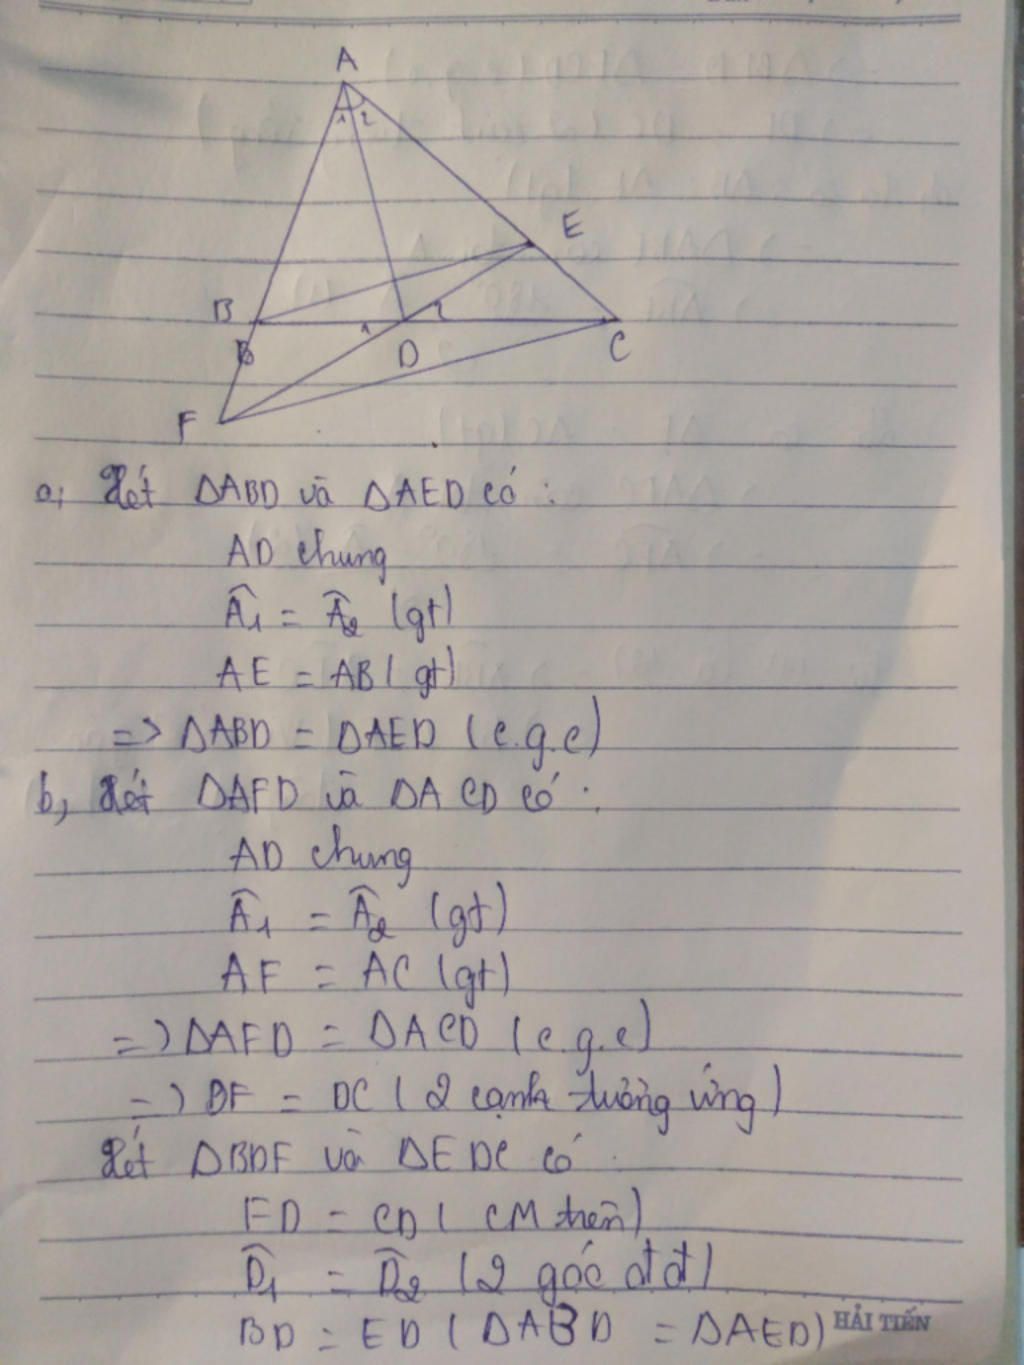 A
1 2
E
B
1
2
B
D
C
F
a, Xét ΔABD và ΔAED có :
AD chung
Â1 = Â2 (gt)
AE = AB (gt)
=> ΔABD = ΔAED (c.g.c)
b, Xét ΔAFD và ΔACD có :
AD chung
Â1 = Â2 (gt)
AF = AC (gt)
=> ΔAFD = ΔACD (c.g.c)
=> DF = DC (2 cạnh tương ứng)
Xét ΔBDF và ΔEDC có
FD = CD ( CM trên)
D̂1 = D̂2 (2 góc đđ)
BD = ED ( ΔABD = ΔAED)
HẢI TIẾN